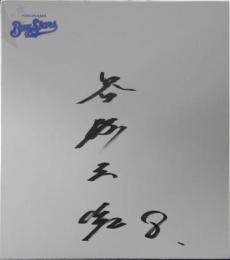 YOKOHAMA
BayStars
谷繁元信 8